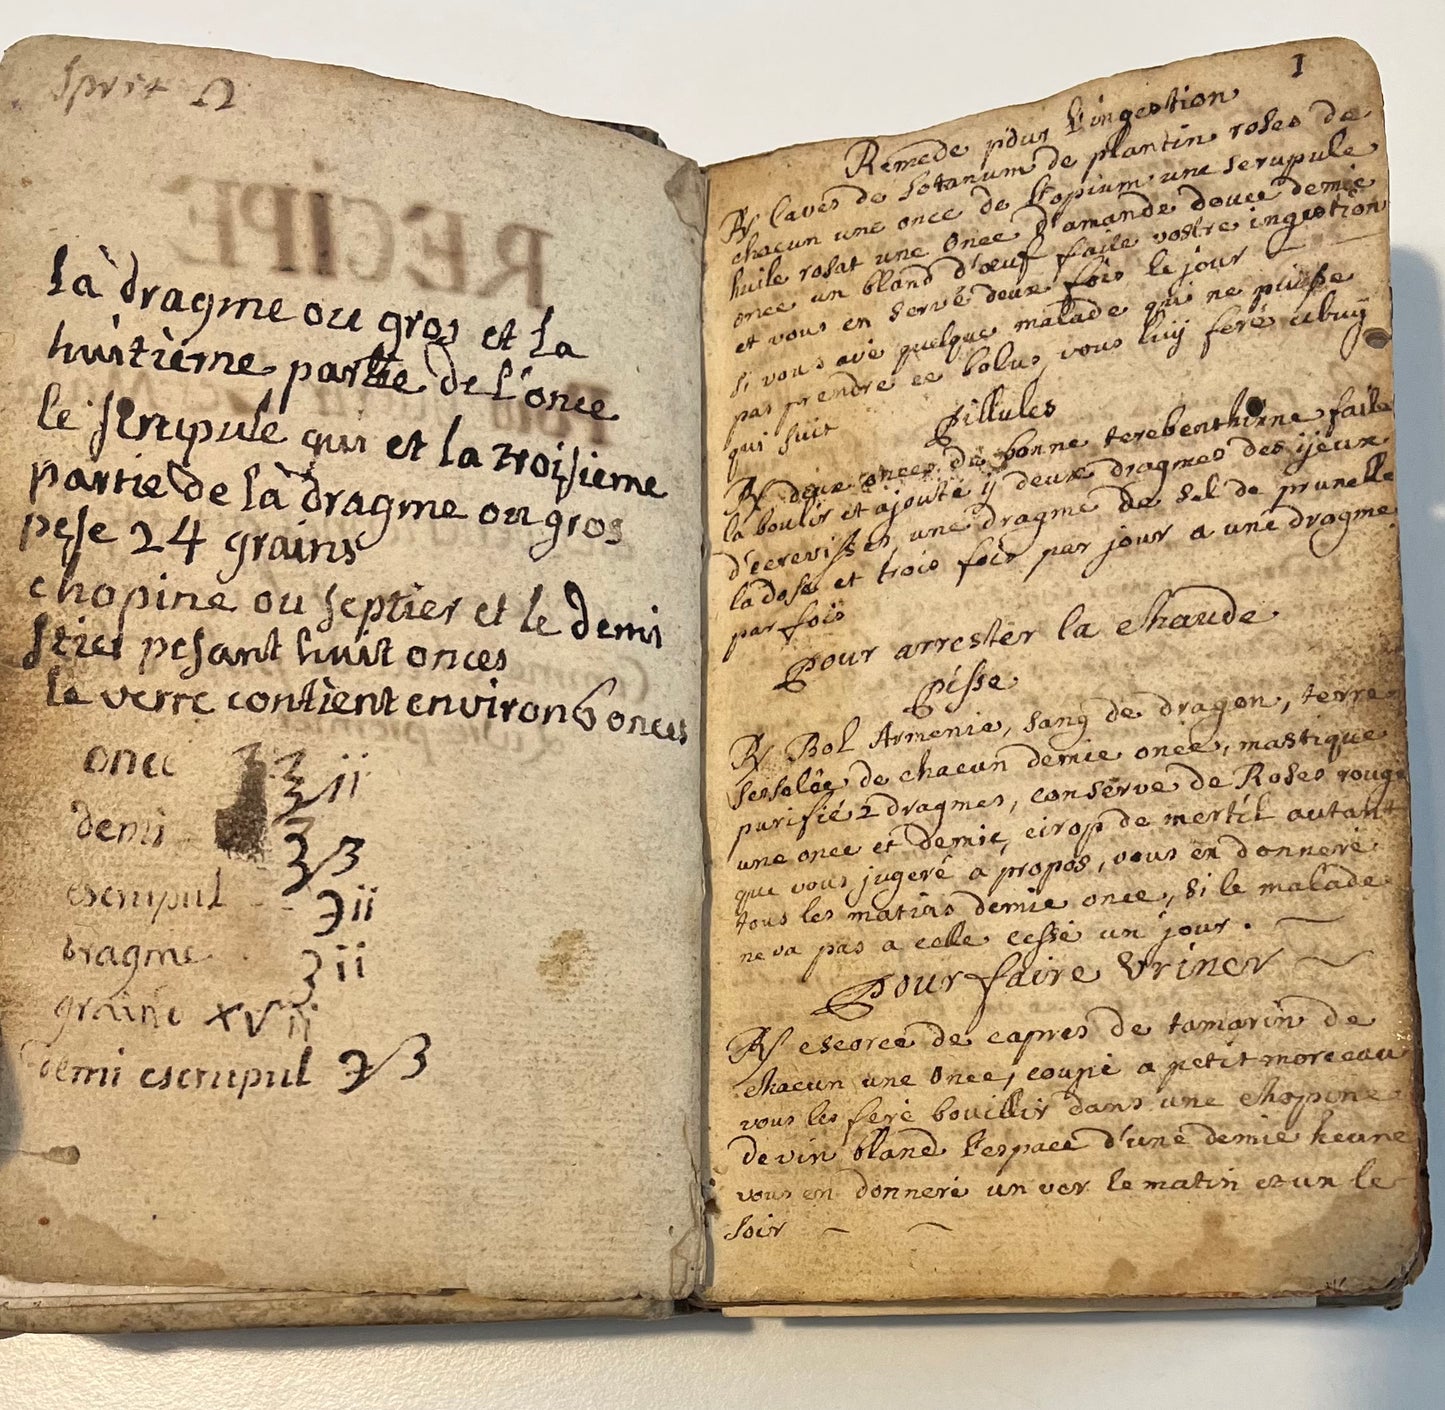 Sprit Ω
RECIPE
la dragme ou gros et la
huitième partie de l'once
le scrupule qui et la troisieme
partie de la dragme ou gros
pese 24 grains
chopine ou septier et le demi
stier pesant huit onces
le verre contient environ 6 onces
once ℥ ℥ ii
demi ℥ß
escrupul ℈ ii
dragme ʒ ii
grains xvii
demi escrupul ℈ß
1
Remede pour l'ingestion
℞ laves de sotanum de plantin roses de
chacun une once de l'opium une scrupule
huile rosat une once d'amande douce demie
once un bland d'œuf faite vostre ingestion
et vous en servé deux fois le jour
si vous avé quelque malade qui ne puisse
pas prendre ce bolus, vous luy feré abuy
qui suit
Pillules
℞ deux onces de bonne terebenthinne faite
la boulir et ajouté y deux dragmes des ijeux
d'ecrevisses, une dragme de sel de prunelle
la dose et trois fois par jour a une dragme
par fois
Pour arrester la chaude
Pisse
℞ Bol Armenie, sang de dragon, terre
sesselée de chacun demie once, mastique
purifié 2 dragmes, conserve de Roses rouge
une once et demie, cirop de mertil autant
que vous jugeré a propos, vous en donneré
tous les matins demie once, si le malade
ne va pas a celle cessé un jour.
Pour faire Vriner
℞ escorce de capres de tamarin de
chacun une once, coupé a petit morceau
vous les feré bouillir dans une chopine
de vin bland l'espace d'une demie heure
vous en donneré un ver le matin et un le
soir